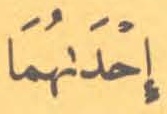 إِحْدَىٰهُمَا